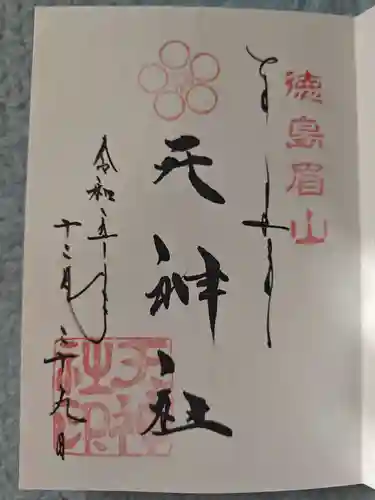 徳島眉山
奉拝
天神社
天神社印
令和五年
十二月二十九日